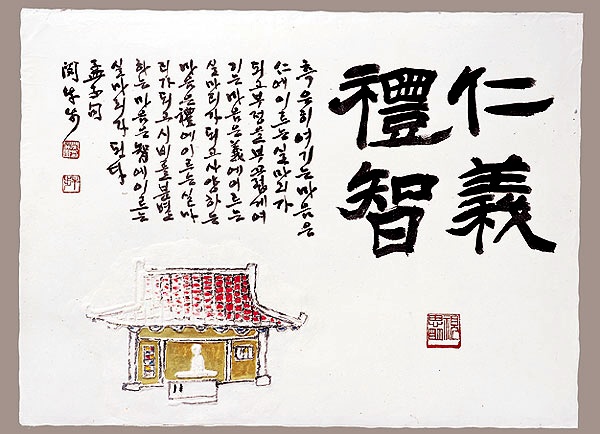 仁義
禮智
측은히여기는마음은
仁에이르는실마리가
되고부정을부끄럽게여
기는마음은義에이르는
실마리가되고사양하는
마음은禮에이르는실마
리가되고시비를분변
하는마음은智에이르는
실마리가된다
孟子句